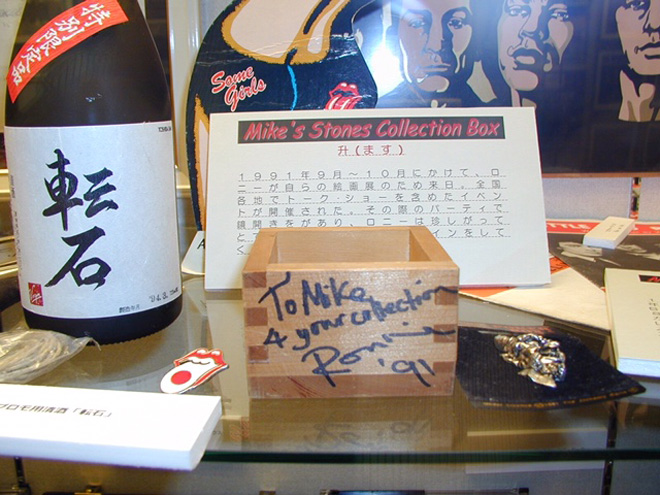 特別限定品
転石
Some Girls
Mike's Stones Collection Box
升(ます)
1991年9月～10月にかけて、ロ
ニーが自らの絵画展のため来日。全国
各地でトーク・ショーを含めたイベン
トが開催された。その際のパーティで
鏡開きをがあり、ロニーは珍しがって
To Mike
4 your collection
Ronnie
'91
プロモ用清酒「転石」